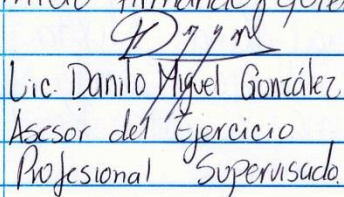 firmando
Lic. Danilo Miguel González
Asesor del Ejercicio
Profesional Supervisado.